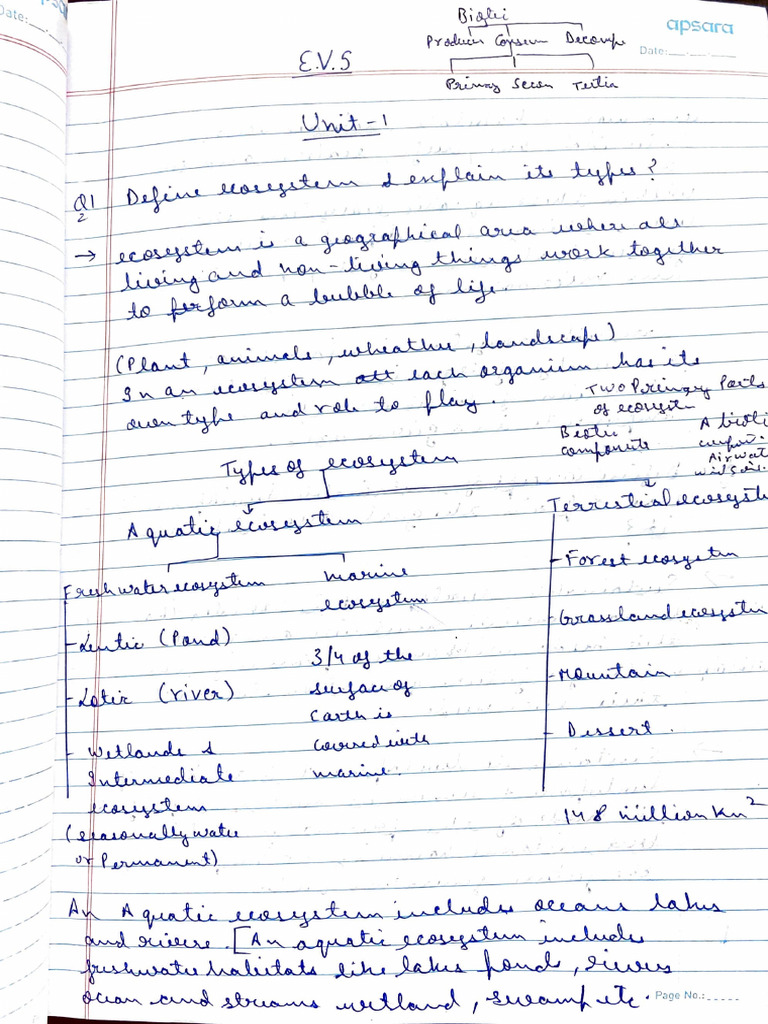 Date:
apsara
Date:
Biotic
Producer Consum Decomp
Primay Secon Tertia
E.V.S
Unit-1
Q1 Define ecosystem & explain its types?
2
→ ecosystem is a geographical area where all
living and non-living things work together
to perform a bubble of life.
(Plant, animals, wheather, landscape)
In an ecosystem each organism has its
own type and role to play.
Two Primary Parts
of ecosystem
Biotic
components
A bioti
compon.
Air wat
wind soil.
Types of ecosystem
Aquatic ecosystem
Terrestial ecosyst
Freshwater ecosystem
marine
ecosystem
Forest ecosystem
Grassland ecosystem
Lentic (Pond)
3/4 of the
Lotic (river)
surface of
Mountain
Earth is
Wetlands &
covered with
Dessert.
Intermediate
marine.
ecosystem
148 million Km2
(seasonally water
or Permanent)
An Aquatic ecosystem includes oceans lakes
and rivers. [An aquatic ecosystem includes
freshwater habitats like lakes ponds, rivers
ocean and streams wetland, swamp etc.
Page No.: